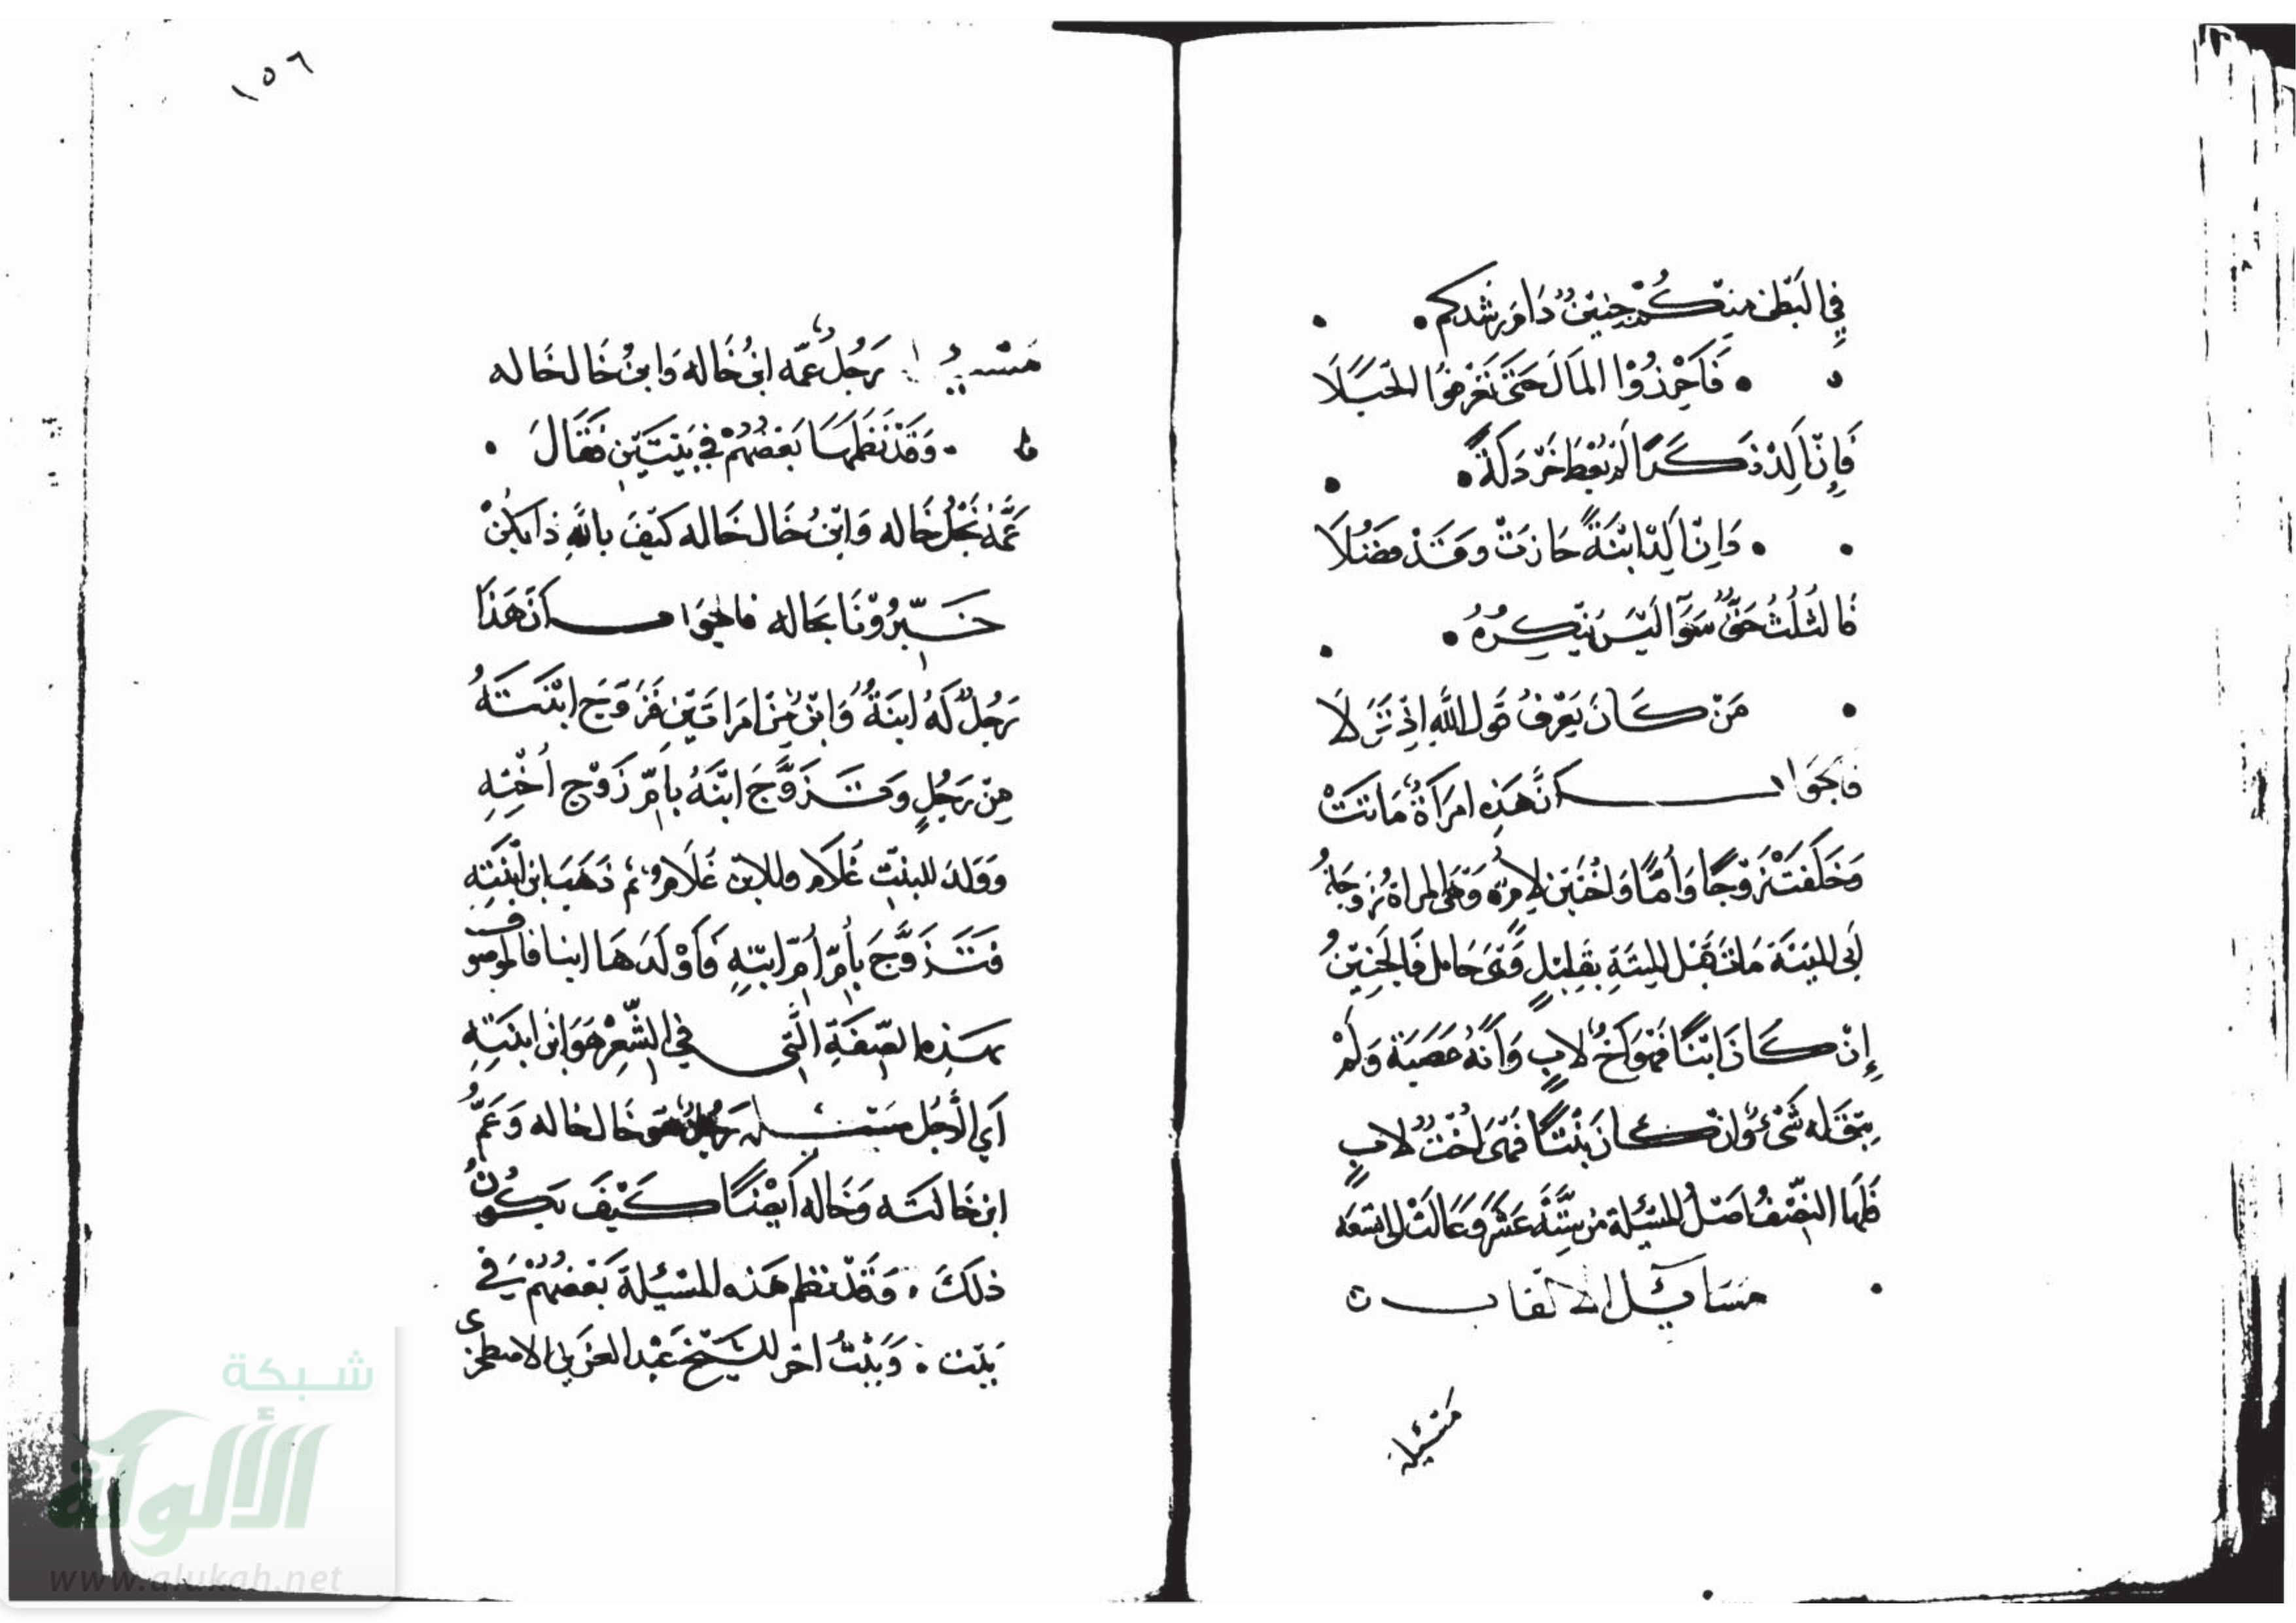 في البطن منكم جنين دام رشدكم
فأحرزوا المال حتى تعرفوا الحبلا
فإن ألد ذكرا لم يعط خردلة
وان ألد ابنة حازت وقد فضلا
فالثلث حق سوآ ليس ينكره
من كان يعرف قول الله اذ نزلا
فالجواب ان هذه امرأة ماتت
وخلفت زوجا وأما واختين لام وهي المراة زوجة
أب الميتة مات قبل الميتة بقليل وهي حامل فالجنين
إن كان ابنا فهو أخ لاب وأنه عصبة ولم
يبق له شيء وان كان بنتا فهي اخت لاب
فلها النصف اصل المسئلة من ستة وعالت الى تسعه
مسائل الالقاب
مسئلة
١٥٦
رجل عمه ابن خاله وابن خال لخاله
وقد نظمها بعضهم في بيتين فقال
عمه نجل خاله وابن خال لخاله كيف بالله ذا يكن
خبرونا بحاله فالجواب ان هذا
رجل له ابنة وابن من امراتين فزوج ابنته
من رجل وتزوج ابنه بأم زوج أخته
وولد للبنت غلام وللابن غلام ثم ذهب ابن ابنته
فتزوج بأم أم ابنه فأولدها ابنا فالموصوف
بهذه الصفة التي في الشعر هو ابن ابنته
أي الرجل مسئله رجل هو خال لخاله وعم
ابن خالته وخاله أيضا كيف يكون
ذلك وقد نظم هذه المسئلة بعضهم في
بيت وبيت اخر للشيخ عبد العزيز الاصطخري
شبكة
الألوكة
www.alukah.net